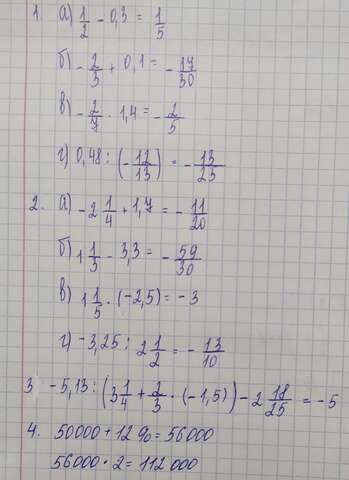 1. а) 1/2 - 0,3 = 1/5
б) - 2/3 + 0,1 = - 17/30
в) - 2/7 · 1,4 = - 2/5
г) 0,48 : (- 12/13) = - 13/25
2. а) - 2 1/4 + 1,7 = - 11/20
б) 1 1/3 - 3,3 = - 59/30
в) 1 1/5 · (-2,5) = -3
г) -3,25 : 2 1/2 = - 13/10
3 -5,13 : (3 1/4 + 2/3 · (-1,5)) - 2 18/25 = -5
4. 50000 + 12% = 56000
56000 · 2 = 112 000